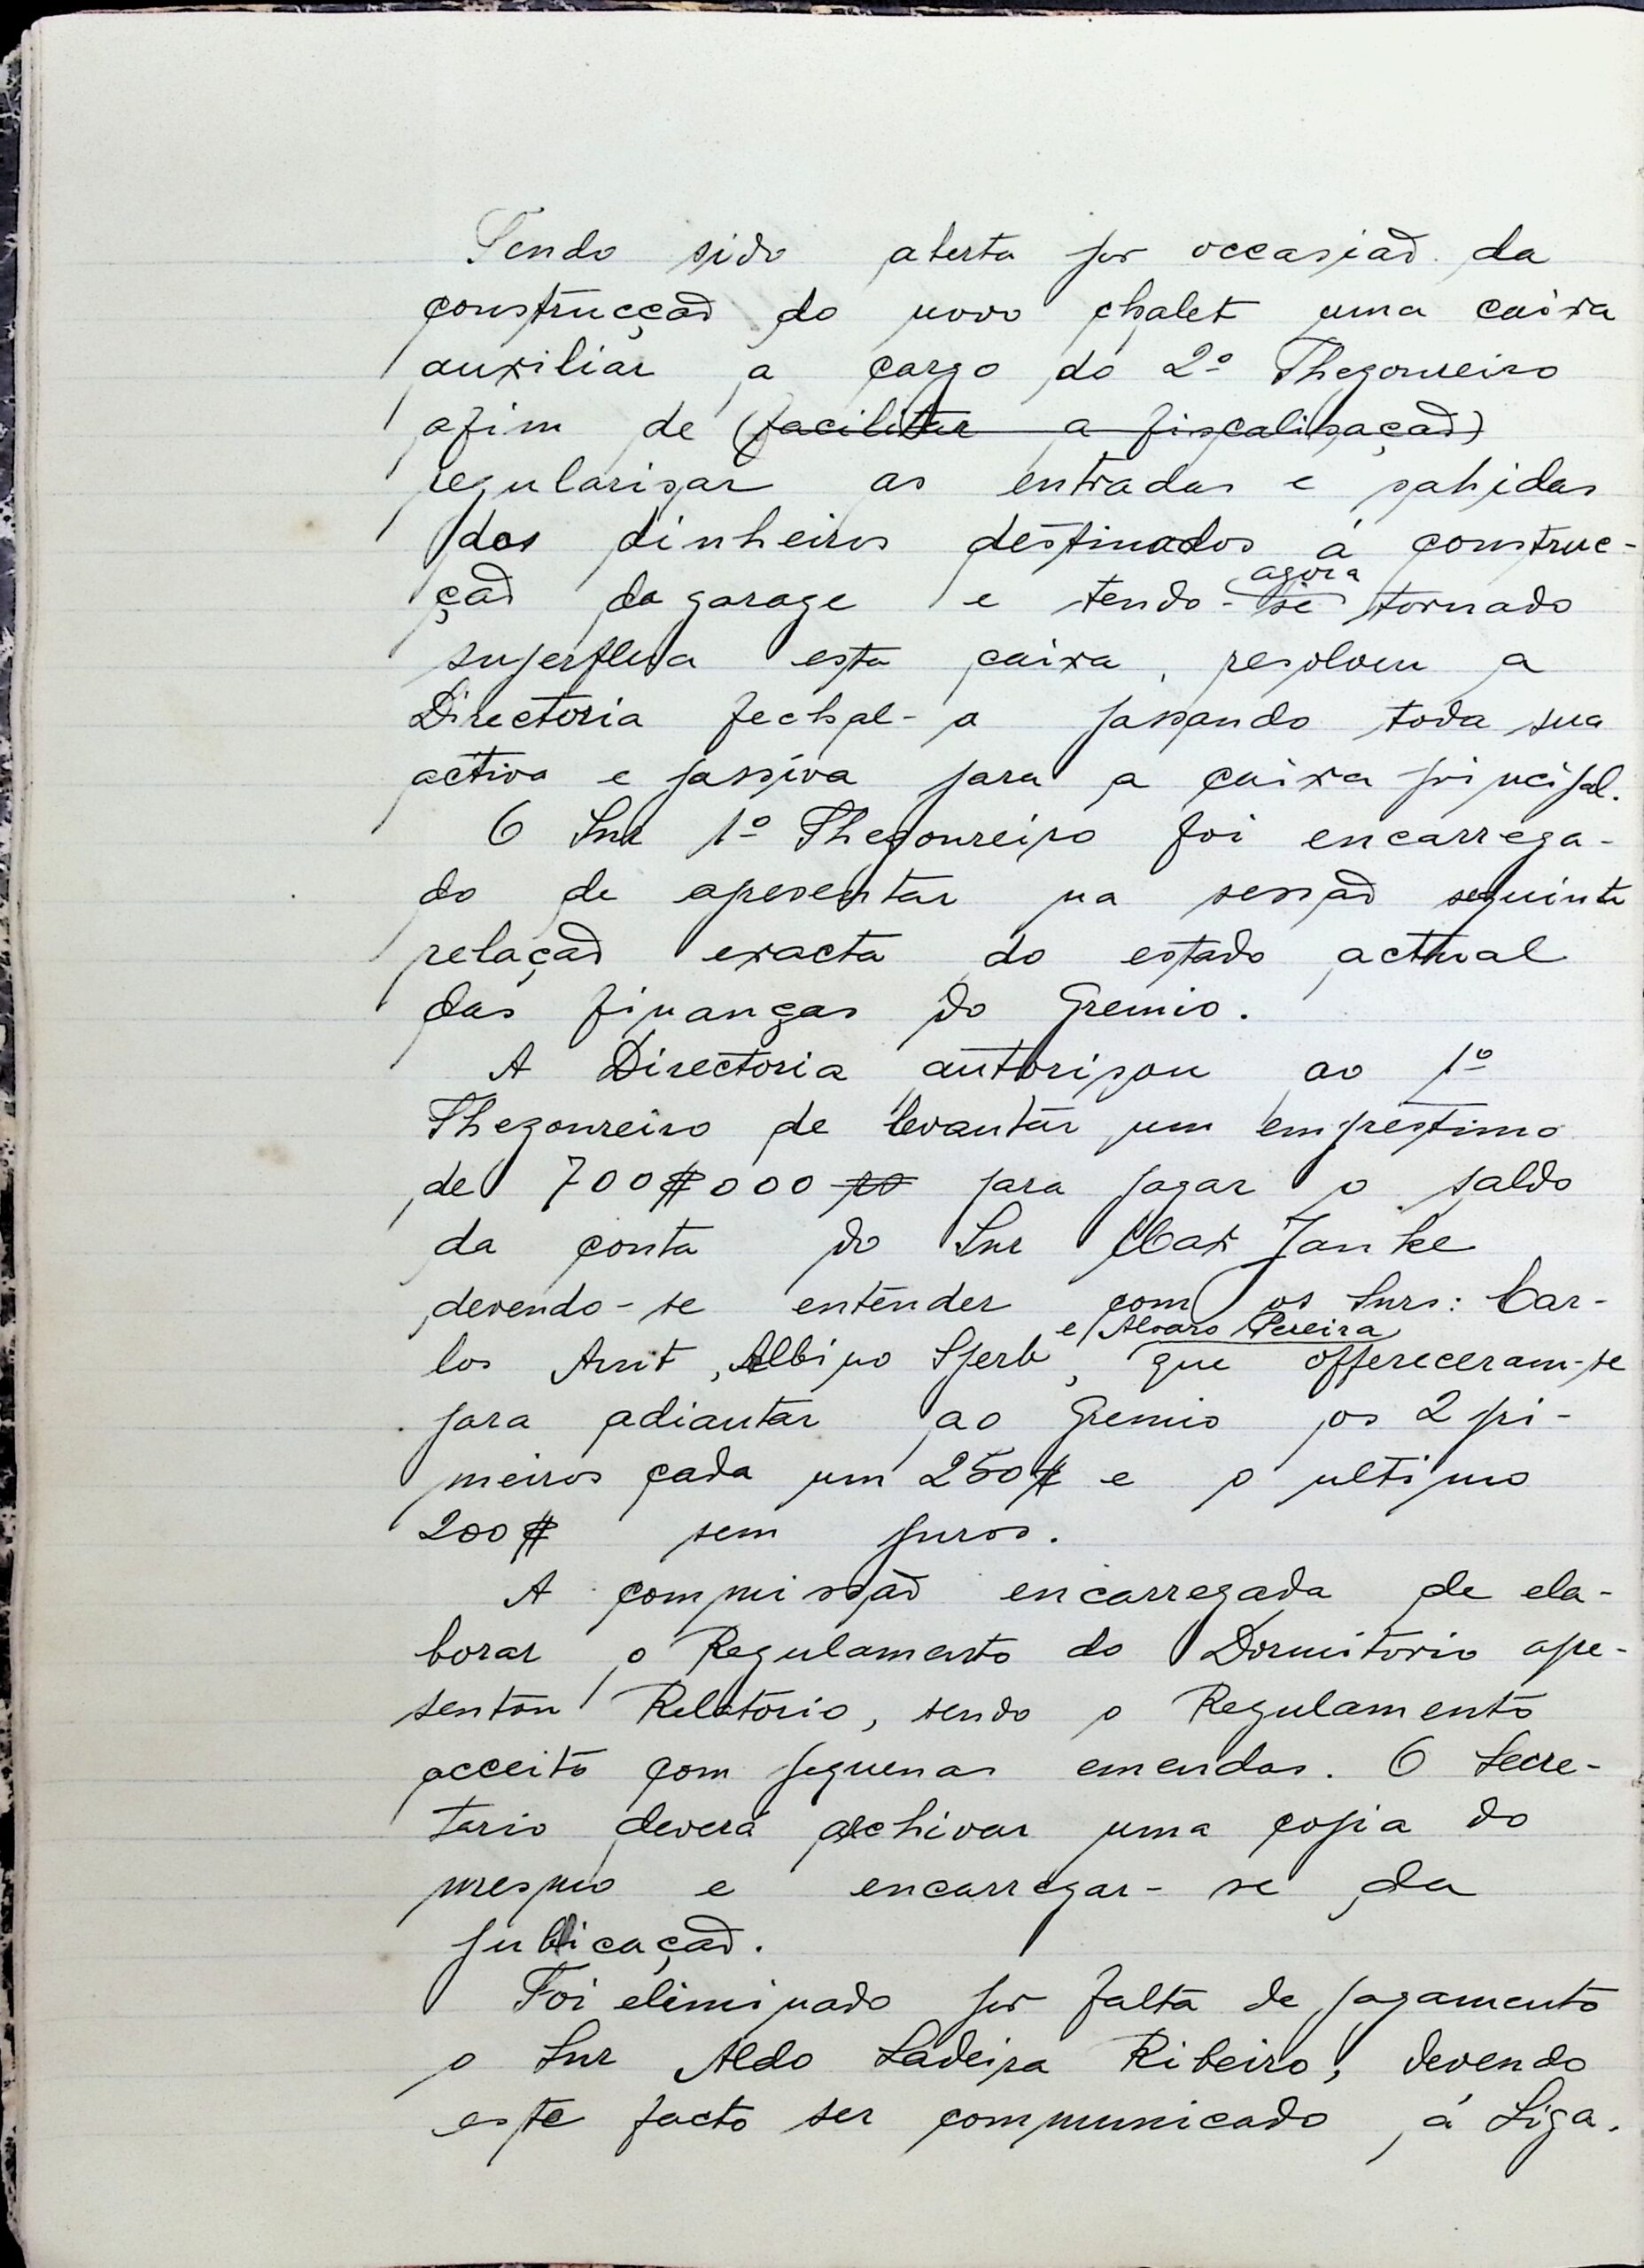 Tendo sido aberta por occasião da
construcção do novo chalet uma caixa
auxiliar a cargo do 2º Thezoureiro
afim de (facilitar a fiscalisação)
regularisar as entradas e sahidas
dos dinheiros destinados á construc-
ção da garage e tendo-se agora tornado
superflua esta caixa, resolveu a
Directoria fechal-a passando toda sua
activa e passiva para a caixa principal.
O Snr 1º Thezoureiro foi encarrega-
do de apresentar na sessão seguinte
relação exacta do estado actual
das finanças do Gremio.
A Directoria autorisou ao 1º
Thezoureiro de levantar um emprestimo
de 700$000 rs para pagar o saldo
da conta do Snr Max Janke
devendo-se entender com os Snrs: Car-
los Arnt, Albino Sperb e Alvaro Pereira, que offereceram-se
para adiantar ao Gremio os 2 pri-
meiros cada um 250$ e o ultimo
200$ sem juros.
A commissão encarregada de ela-
borar o Regulamento do Dormitorio apre-
sentou Relatorio, sendo o Regulamento
acceito com pequenas emendas. O Secre-
tario deverá archivar uma copia do
mesmo e encarregar-se da
publicação.
Foi eliminado por falta de pagamento
o Snr Aldo Ladeira Ribeiro, devendo
este facto ser communicado á Liga.